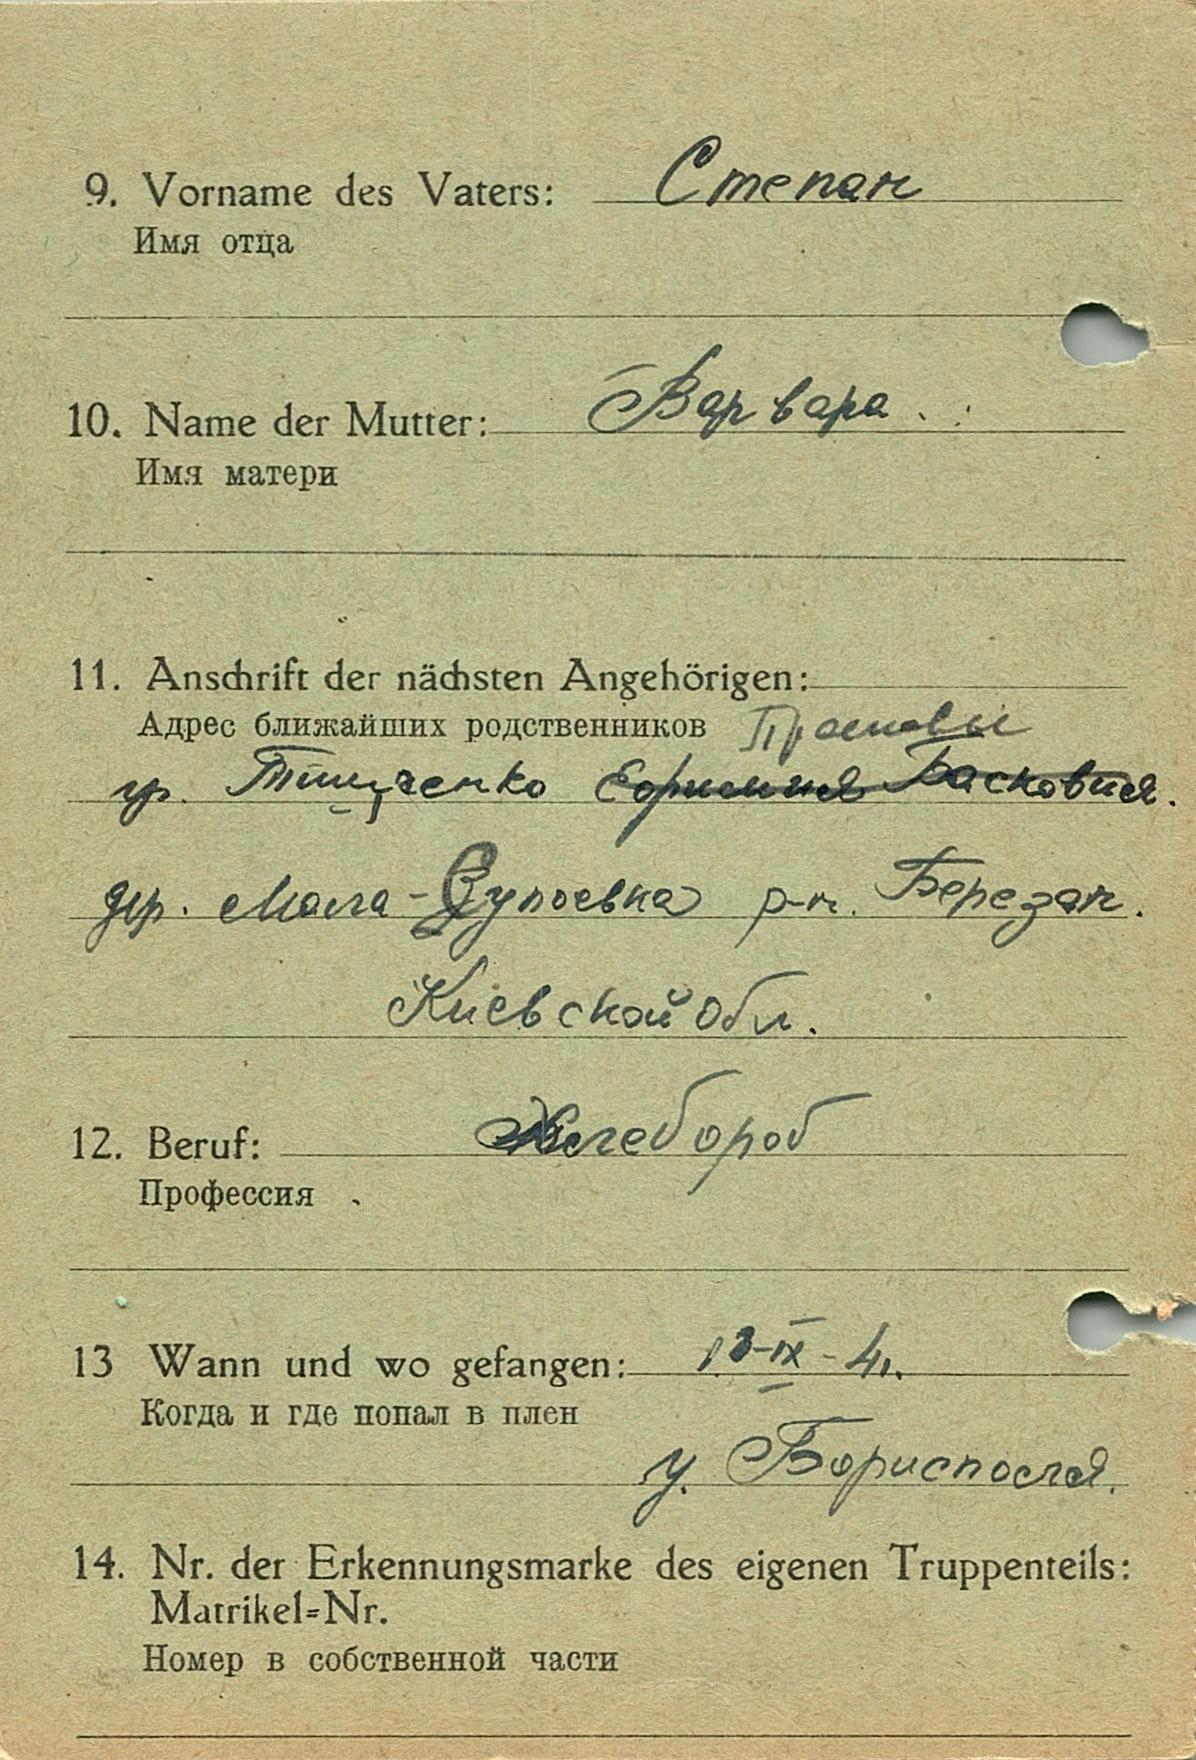 9. Vorname des Vaters: Степан
Имя отца
10. Name der Mutter: Варвара.
Имя матери
11. Anschrift der nächsten Angehörigen:
Адрес ближайших родственников Прасковы
гр. Тищченко Басковия.
дер. Мала-Супоевка р-н. Березан.
Киевской обл.
12. Beruf: Хлебороб
Профессия
13 Wann und wo gefangen: -IX-41.
Когда и где попал в плен
у. Борисполя.
14. Nr. der Erkennungsmarke des eigenen Truppenteils:
Matrikel=Nr.
Номер в собственной части